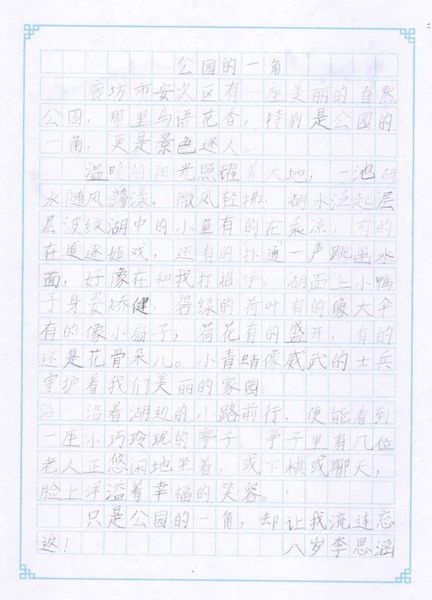 公园的一角
廊坊市安次区有一座美丽的自然
公园，那里鸟语花香，特别是公园的
一角，更是景色迷人。
温暖的阳光照耀着大地，一池湖
水随风荡漾。微风轻拂，湖水泛起层
层波纹湖中的小鱼有的在乘凉，有的
在追逐嬉戏，还有的扑通一声跳出水
面，好像在和我打招呼。湖面上小鸭
子身姿矫健，碧绿的荷叶有的像大伞
有的像小扇子，荷花有的盛开，有的
还是花骨朵儿。小青蛙像威武的士兵
守护着我们美丽的家园。
沿 沿着湖边的小路前行，便能看到
一座小巧玲珑的亭子。亭子里有几位
老人正悠闲地坐着，或下棋或聊天，
脸上洋溢着幸福的笑容。
只是公园的一角，却让我流连忘
返！ 八岁李思涵